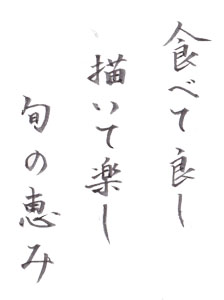 食べて良し
描いて楽し
旬の恵み